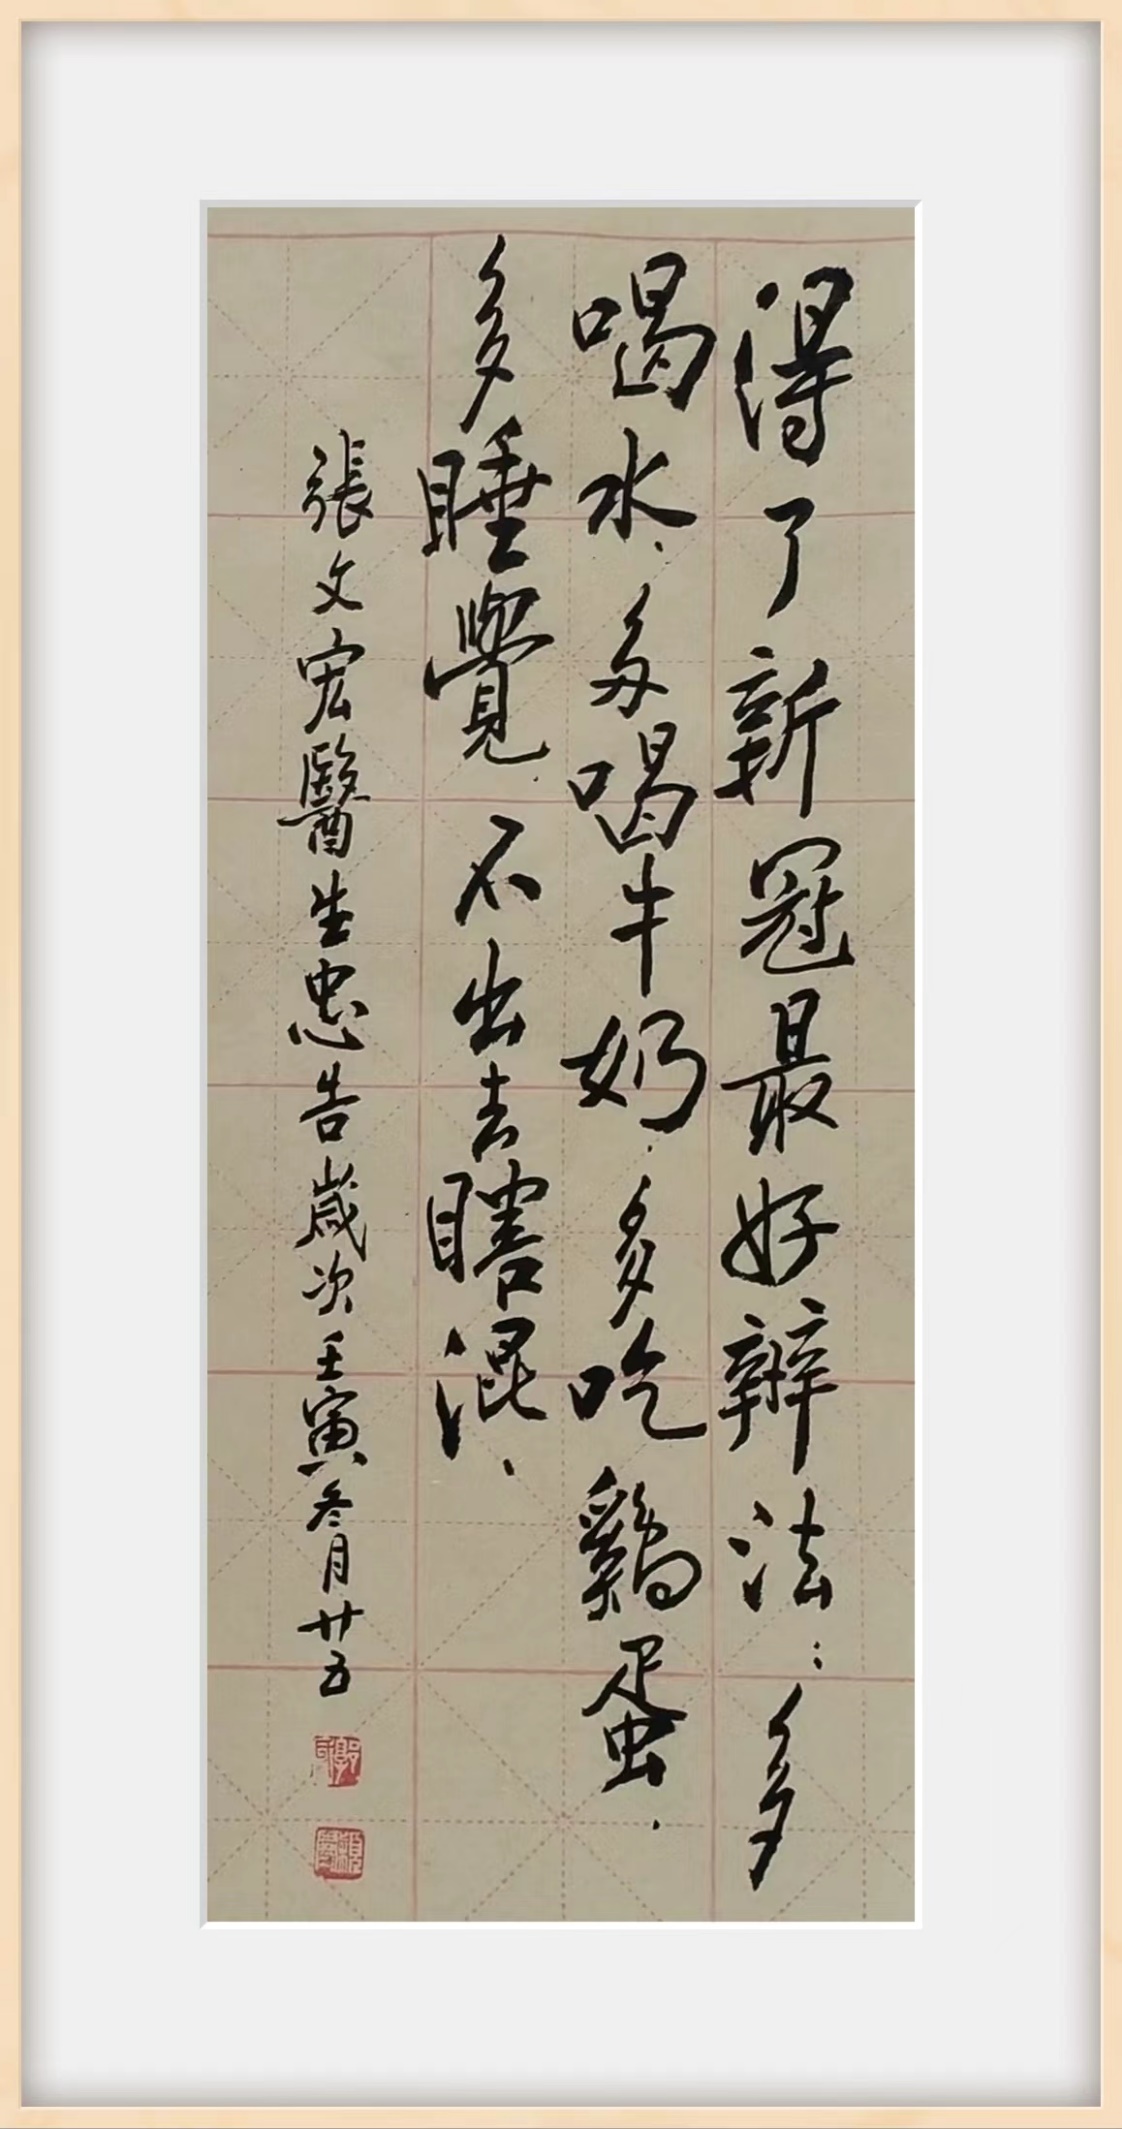 得了新冠最好辦法：多
喝水.多喝牛奶.多吃鷄蛋.
多睡覺.不出去瞎混.
張文宏醫生忠告歲次壬寅冬月廿五